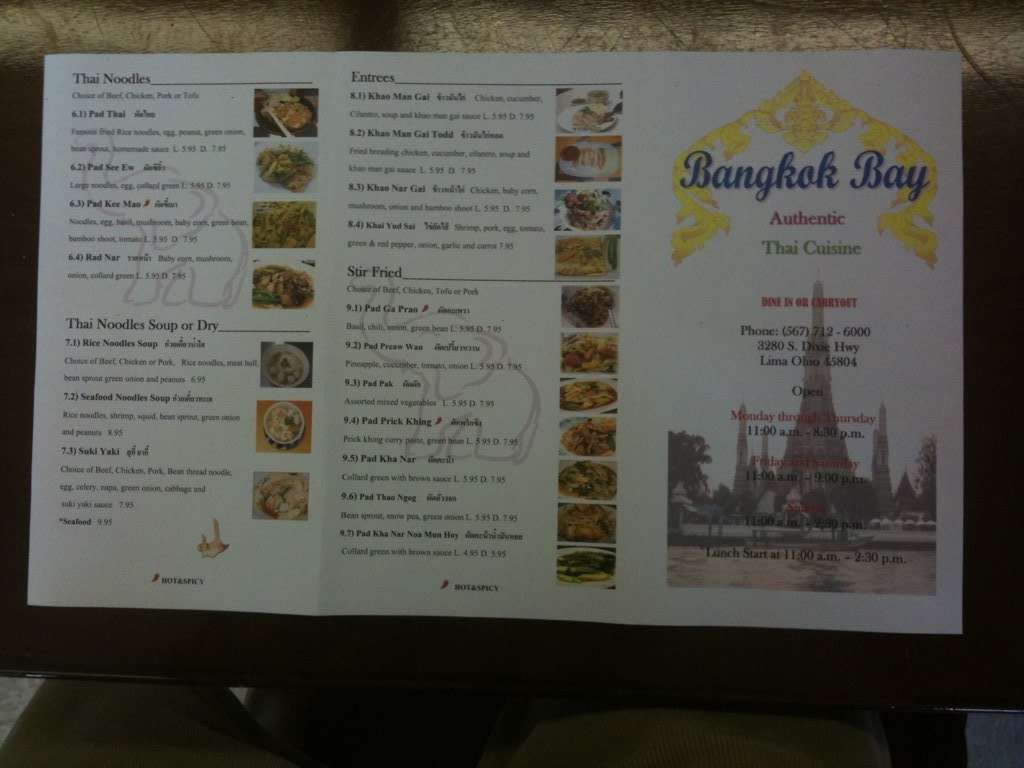 Thai Noodles
Choice of Beef, Chicken, Pork or Tofu
6.1) Pad Thai ผัดไทย
Famous fried Rice noodles, egg, peanut, green onion,
bean sprout, homemade sauce L. 5.95 D. 7.95
6.2) Pad See Ew ผัดซีอิ๊ว
Large noodles, egg, collard green L. 5.95 D. 7.95
6.3) Pad Kee Mao ผัดขี้เมา
Noodles, egg, basil, mushroom, baby corn, green bean,
bamboo shoot, tomato L. 5.95 D. 7.95
6.4) Rad Nar ราดหน้า Baby corn, mushroom,
onion, collard green L. 5.95 D. 7.95
Thai Noodles Soup or Dry
7.1) Rice Noodles Soup ก๋วยเตี๋ยวน้ำใส
Choice of Beef, Chicken or Pork, Rice noodles, meat ball,
bean sprout green onion and peanuts 6.95
7.2) Seafood Noodles Soup ก๋วยเตี๋ยวทะเล
Rice noodles, shrimp, squid, bean sprout, green onion
and peanuts 8.95
7.3) Suki Yaki สุกี้ ยากี้
Choice of Beef, Chicken, Pork, Bean thread noodle,
egg, celery, napa, green onion, cabbage and
suki yaki sauce 7.95
*Seafood 9.95
HOT&SPICY
Entrees
8.1) Khao Man Gai ข้าวมันไก่ Chicken, cucumber,
Cilantro, soup and khao man gai sauce L. 5.95 D. 5.95
8.2) Khao Man Gai Todd ข้าวมันไก่ทอด
Fried breading chicken, cucumber, cilantro, soup and
khao man gai sauce L. 5.95 D. 7.95
8.3) Khao Nar Gai ข้าวหน้าไก่ Chicken, baby corn,
mushroom, onion and bamboo shoot L. 5.95 D. 7.95
8.4) Khai Yud Sai ไข่ยัดไส้ Shrimp, pork, egg, tomato,
green & red pepper, onion, garlic and carrot 7.95
Stir Fried
Choice of Beef, Chicken, Tofu or Pork
9.1) Pad Ga Prao ผัดกะเพรา
Basil, chili, onion, green bean L. 5.95 D. 7.95
9.2) Pad Preaw Wan ผัดเปรี้ยวหวาน
Pineapple, cucumber, tomato, onion L. 5.95 D. 7.95
9.3) Pad Pak ผัดผัก
Assorted mixed vegetables L. 5.95 D. 7.95
9.4) Pad Prick Khing ผัดพริกขิง
Prick khong curry paste, green bean L. 5.95 D. 7.95
9.5) Pad Kha Nar ผัดคะน้า
Collard green with brown sauce L. 5.95 D. 7.95
9.6) Pad Thao Ngog ผัดถั่วงอก
Bean sprout, snow pea, green onion L. 5.95 D. 7.95
9.7) Pad Kha Nar Noa Mun Hoy ผัดคะน้าน้ำมันหอย
Collard green with brown sauce L. 4.95 D. 5.95
HOT&SPICY
Bangkok Bay
Authentic
Thai Cuisine
DINE IN OR CARRYOUT
Phone: (567) 712 - 6000
3280 S. Dixie Hwy
Lima Ohio 45804
Open
Monday through Thursday
11:00 a.m. - 8:30 p.m.
Friday and Saturday
11:00 a.m. - 9:00 p.m.
11:00 a.m. - 2:30 p.m.
*Lunch Start at 11:00 a.m. - 2:30 p.m.